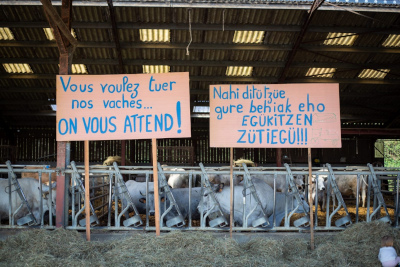 Vous voulez tuer
nos vaches...
ON VOUS ATTEND!
Nahi ditutzüe
gure behiak eho
EGUKITZEN
ZÜTIEGÜ!!!